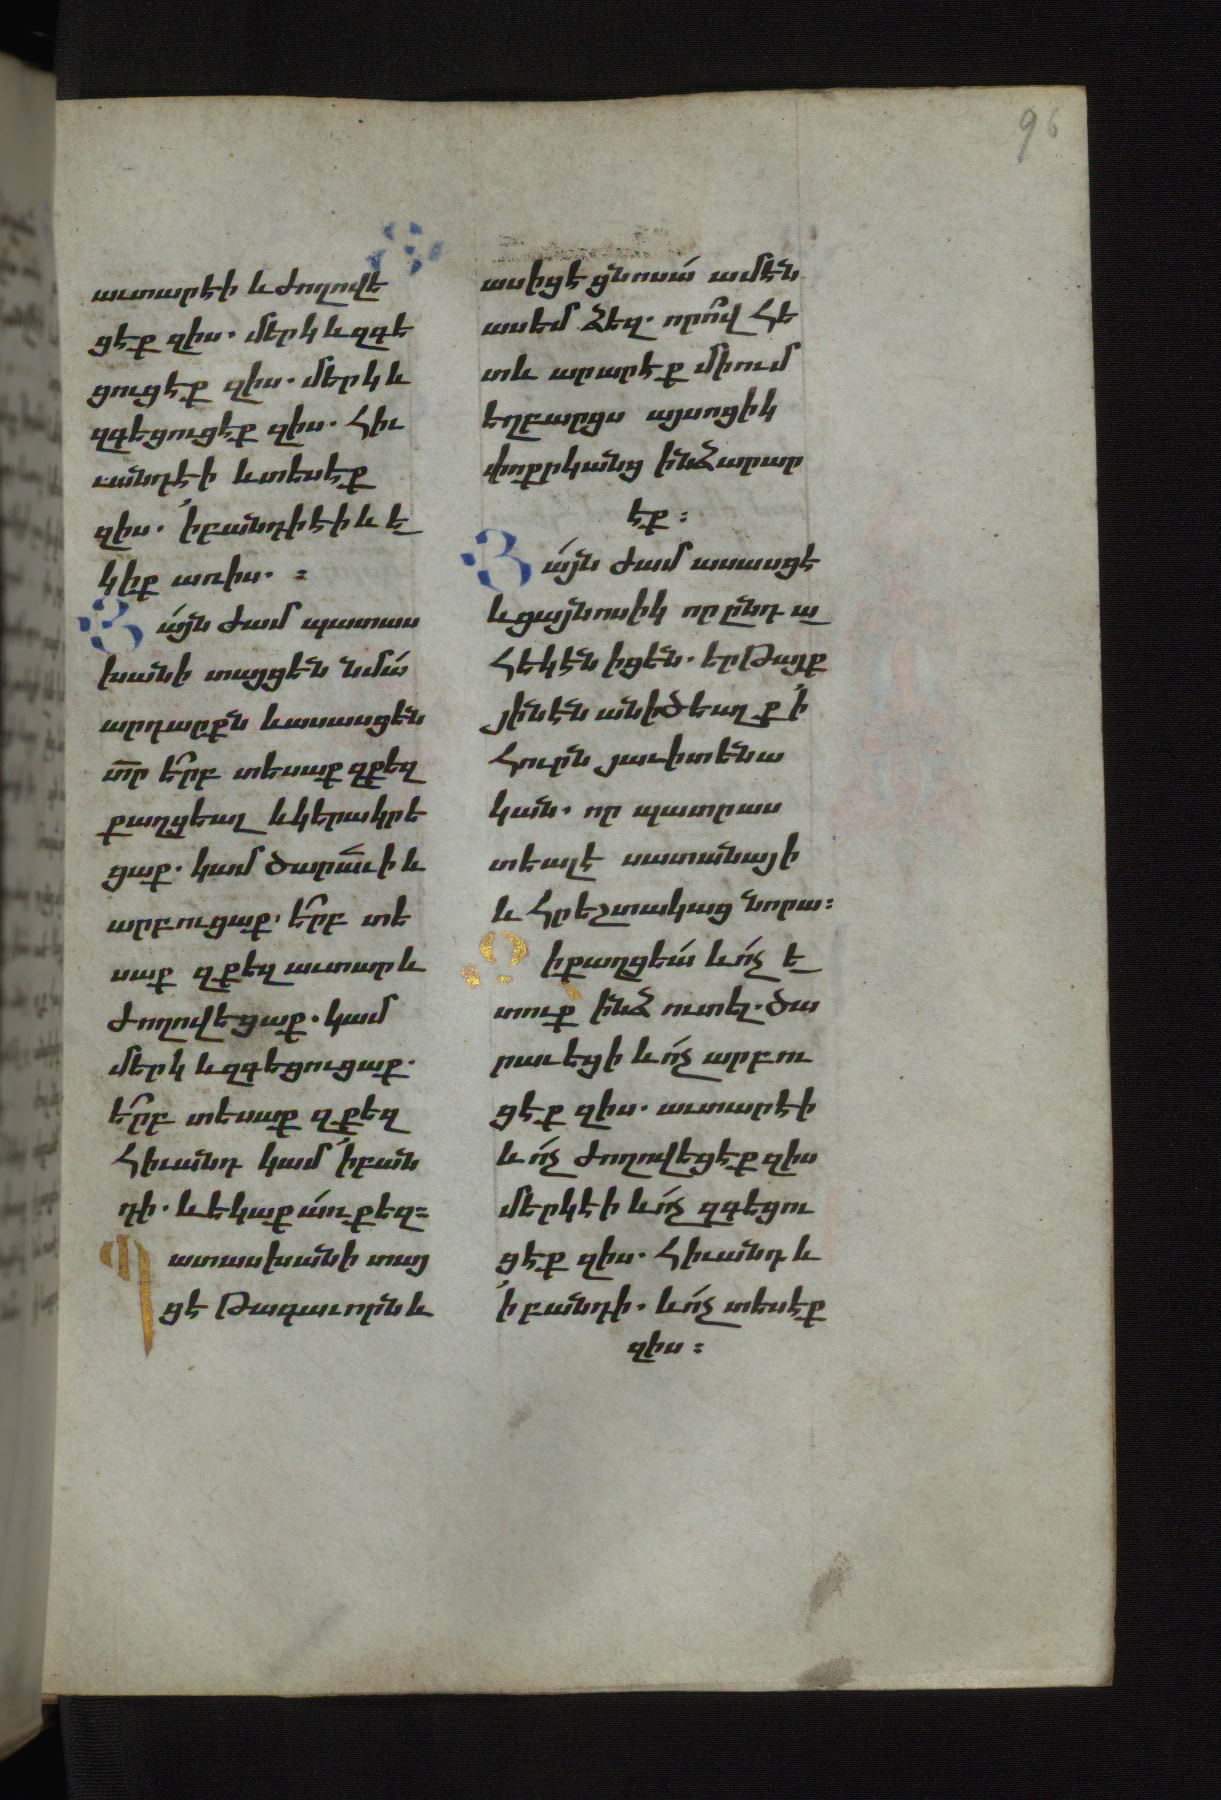 96
աւտարէի և ժողովե
ցէք զիս. մերկ և զգե
ցուցէք զիս. մերկ և
զգեցուցէք զիս. հիւ
ւանդէի և տեսէք
զիս. ՛ի բանդի էի և ե
կիք առ իս. ։
Յայն ժամ պատաս
խանի տայցեն նմա
արդարքն և ասասցեն
տր երբ տեսաք զքեզ
քաղցեալ և կերակրե
ցաք. կամ ծարաւի և
արբուցաք. երբ տե
սաք զքեզ աւտար և
ժողովեցաք. կամ
մերկ և զգեցուցաք.
երբ տեսաք զքեզ
հիւանդ կամ ՛ի բան
դի. և եկաք առ քեզ։
Պատասխանի տայ
ցե թագաւորն և
ասիցէ ցնոսա ամէն
ասեմ ձեզ. որով հե
տև արարէք միում
եղբարցս այսոցիկ
փոքրկանց ինձ արար
էք ։
Յայն ժամ ասասցե
և ցայնոսիկ որ ընդ ա
հեկէն իցեն. երթայք
յինէն անիծեալք ՛ի
հուրն յաւիտենա
կան. որ պատրաս
տեալ է սատանայի
և հրեշտակաց նորա։
Զի քաղցեա և ոչ ե
տուք ինձ ուտել. ծա
րաւեցի և ոչ արբու
ցէք զիս. աւտար էի
և ոչ ժողովեցէք զիս
մերկ էի և ոչ զգեցու
ցէք զիս. հիւանդ և
՛ի բանդի. և ոչ տեսէք
զիս ։